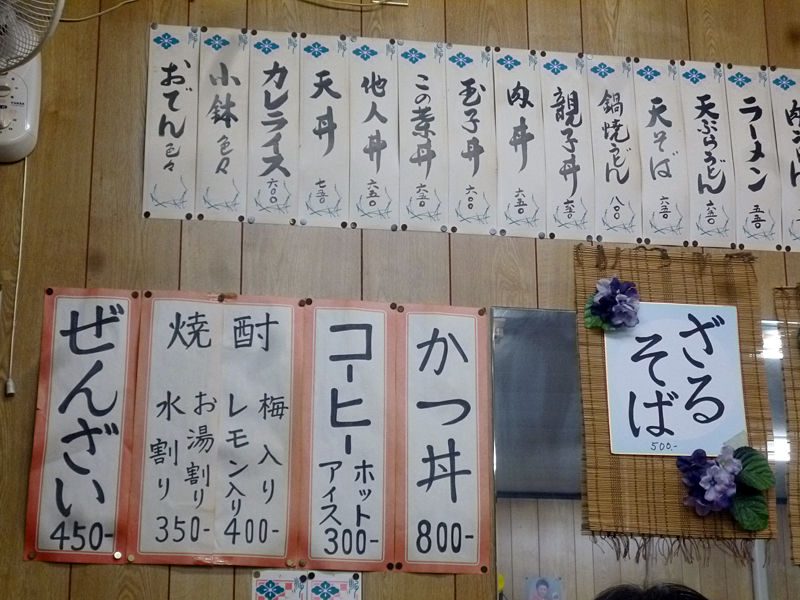 ラーメン 五五〇
天ぷらうどん 六五〇
天そば 六五〇
鍋焼うどん 八〇〇
親子丼 六五〇
肉丼 六五〇
玉子丼 六〇〇
この葉丼 六五〇
他人丼 六五〇
天丼 七五〇
カレライス 六〇〇
小鉢 色々
おでん 色々
ざる
そば
500.-
かつ丼
800-
コーヒー
ホット
アイス
300-
焼酎
梅入り
レモン入り
400-
お湯割り
水割り
350-
ぜんざい
450-